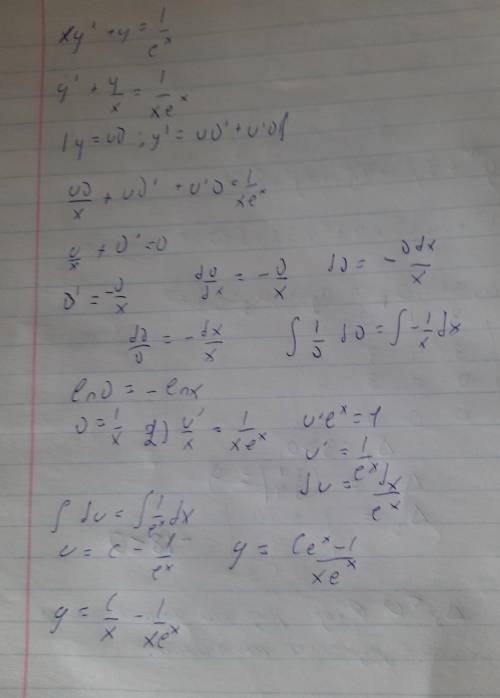 xy' + y = 1/e^x
y' + y/x = 1/(xe^x)
|y = uυ ; y' = uυ' + u'υ|
uυ/x + uυ' + u'υ = 1/(xe^x)
υ/x + υ' = 0
υ' = -υ/x    dυ/dx = -υ/x    dυ = -υdx/x
dυ/υ = -dx/x    ∫ 1/υ dυ = ∫ -1/x dx
ln υ = -ln x
υ = 1/x    2) u'/x = 1/(xe^x)    u'e^x = 1
u' = 1/e^x
du = dx/e^x
∫ du = ∫ 1/e^x dx
u = C - 1/e^x    y = (Ce^x - 1)/(xe^x)
y = C/x - 1/(xe^x)